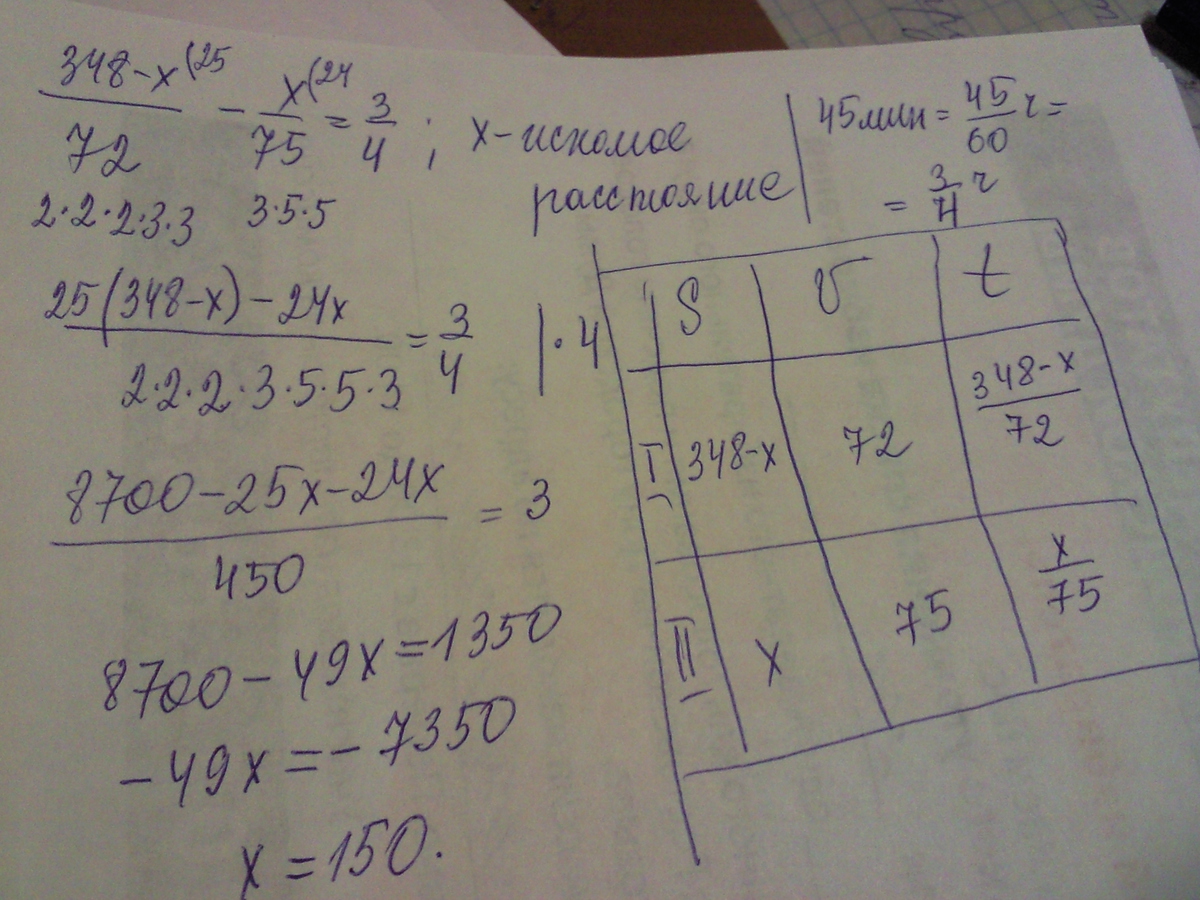 348-x(25 / 72 - x(24 / 75 = 3/4 ; x-искомое расстояние
2·2·2·3·3 3·5·5
25(348-x)-24x / 2·2·2·3·5·5·3 = 3/4 |·4
8700-25x-24x / 450 = 3
8700-49x=1350
-49x=-7350
x=150.
45мин = 45/60 ч =
= 3/4 ч
S V t
I 348-x 72 348-x / 72
II x 75 x / 75